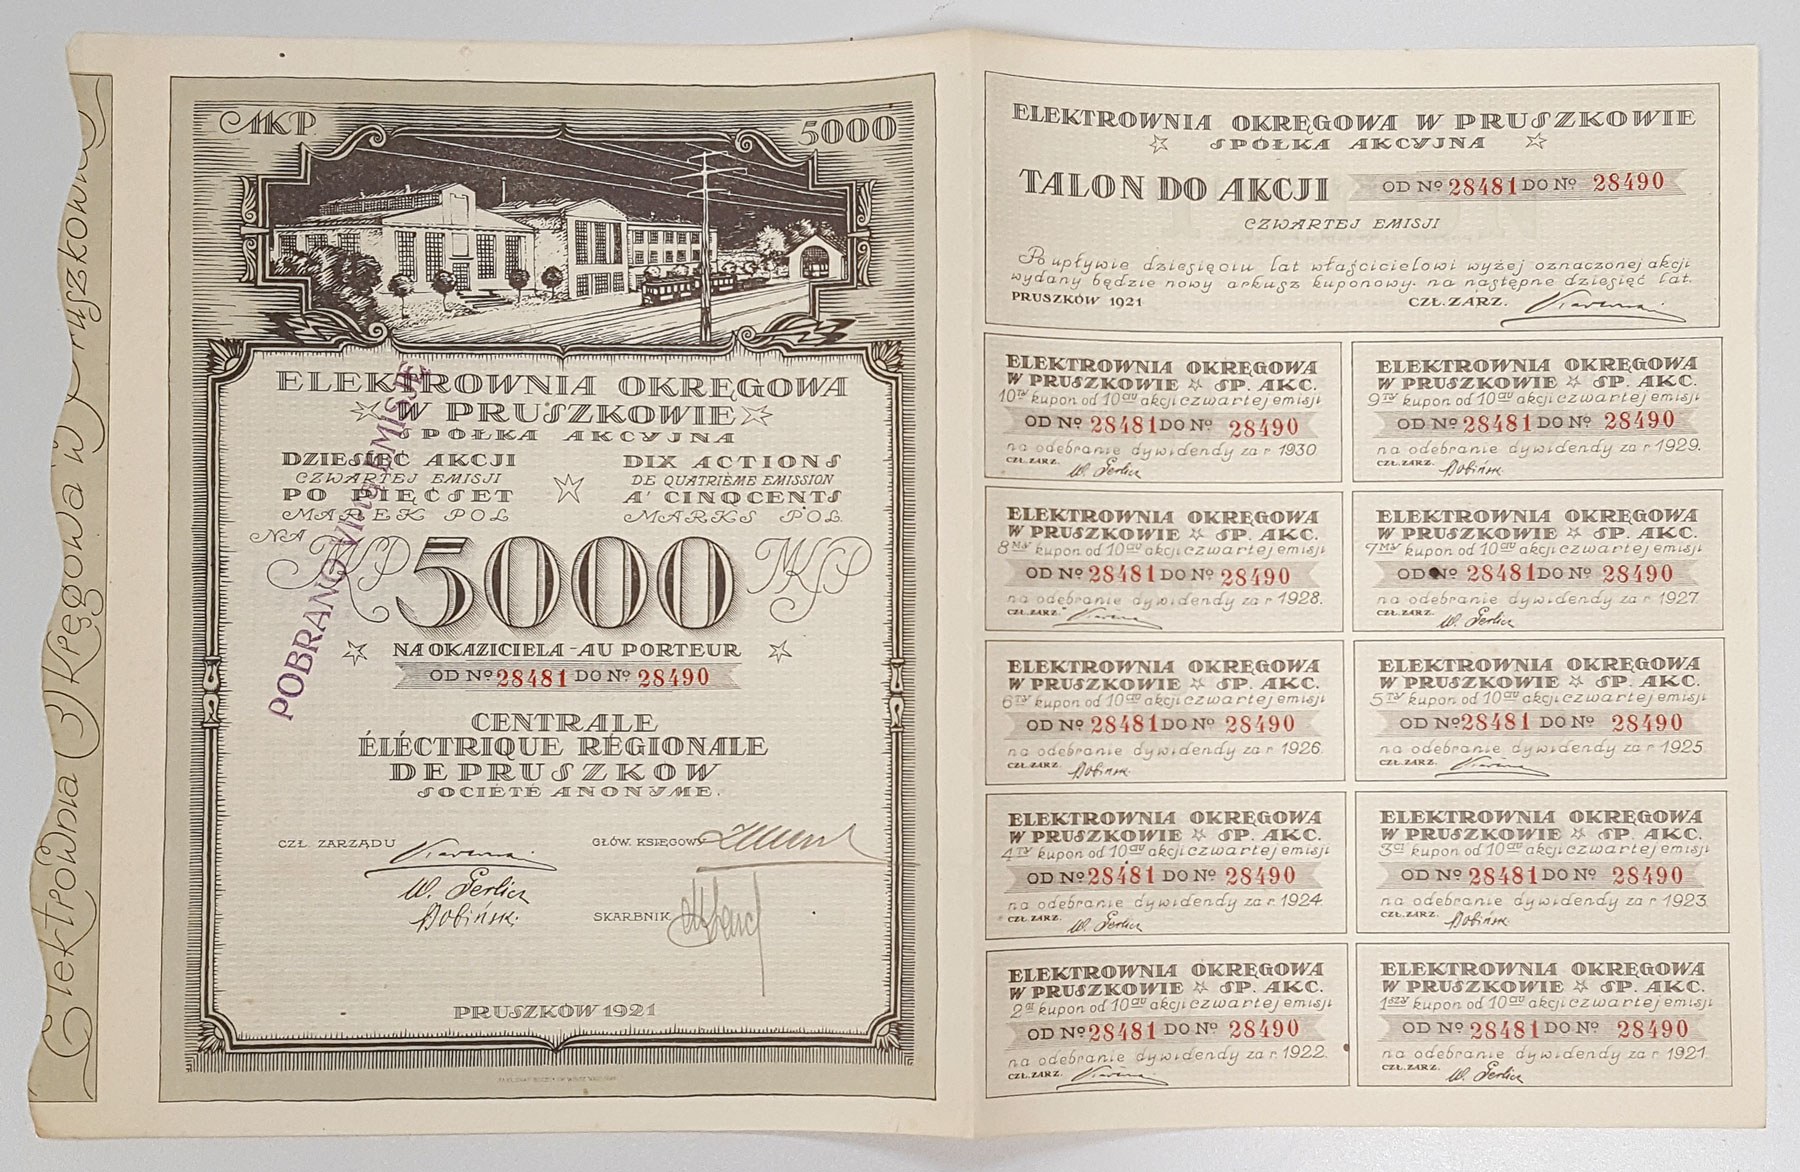 Elektrownia Okręgowa w Pruszkowie
MKP 5000
ELEKTROWNIA OKRĘGOWA
W PRUSZKOWIE
SPÓŁKA AKCYJNA
DZIESIĘĆ AKCJI
CZWARTEJ EMISJI
PO PIĘĆSET
MAREK POL
DIX ACTIONS
DE QUATRIÈME EMISSION
A' CINQCENTS
MARKS POL.
NA
MKP 5000 MKP
NA OKAZICIELA - AU PORTEUR
OD № 28481 DO № 28490
POBRANO VIII EMISJĘ
CENTRALE
ÉLÉCTRIQUE RÉGIONALE
DE PRUSZKÓW
SOCIÉTÉ ANONYME.
CZŁ. ZARZĄDU
W. Gerlicz
Dobińsk.
GŁÓW. KSIĘGOWY
SKARBNIK
PRUSZKÓW 1921
ELEKTROWNIA OKRĘGOWA W PRUSZKOWIE
SPÓŁKA AKCYJNA
TALON DO AKCJI OD № 28481 DO № 28490
CZWARTEJ EMISJI
Po upływie dziesięciu lat właścicielowi wyżej oznaczonej akcji
wydany będzie nowy arkusz kuponowy na następne dziesięć lat.
PRUSZKÓW 1921 CZŁ. ZARZ.
ELEKTROWNIA OKRĘGOWA
W PRUSZKOWIE SP. AKC.
10ty kupon od 10ciu akcji czwartej emisji
OD № 28481 DO № 28490
na odebranie dywidendy za r 1930
CZŁ. ZARZ.
W. Gerlicz
ELEKTROWNIA OKRĘGOWA
W PRUSZKOWIE SP. AKC.
9ty kupon od 10ciu akcji czwartej emisji
OD № 28481 DO № 28490
na odebranie dywidendy za r 1929.
CZŁ. ZARZ.
Dobińsk
ELEKTROWNIA OKRĘGOWA
W PRUSZKOWIE SP. AKC.
8my kupon od 10ciu akcji czwartej emisji
OD № 28481 DO № 28490
na odebranie dywidendy za r 1928.
CZŁ. ZARZ.
ELEKTROWNIA OKRĘGOWA
W PRUSZKOWIE SP. AKC.
7my kupon od 10ciu akcji czwartej emisji
OD № 28481 DO № 28490
na odebranie dywidendy za r 1927.
CZŁ. ZARZ.
W. Gerlicz
ELEKTROWNIA OKRĘGOWA
W PRUSZKOWIE SP. AKC.
6ty kupon od 10ciu akcji czwartej emisji
OD № 28481 DO № 28490
na odebranie dywidendy za r 1926.
CZŁ. ZARZ.
Dobińsk.
ELEKTROWNIA OKRĘGOWA
W PRUSZKOWIE SP. AKC.
5ty kupon od 10ciu akcji czwartej emisji
OD № 28481 DO № 28490
na odebranie dywidendy za r 1925.
CZŁ. ZARZ.
ELEKTROWNIA OKRĘGOWA
W PRUSZKOWIE SP. AKC.
4ty kupon od 10ciu akcji czwartej emisji
OD № 28481 DO № 28490
na odebranie dywidendy za r 1924
CZŁ. ZARZ.
W. Gerlicz
ELEKTROWNIA OKRĘGOWA
W PRUSZKOWIE SP. AKC.
3ci kupon od 10ciu akcji czwartej emisji
OD № 28481 DO № 28490
na odebranie dywidendy za r 1923
CZŁ. ZARZ.
Dobińsk
ELEKTROWNIA OKRĘGOWA
W PRUSZKOWIE SP. AKC.
2gi kupon od 10ciu akcji czwartej emisji
OD № 28481 DO № 28490
na odebranie dywidendy za r 1922.
CZŁ. ZARZ.
ELEKTROWNIA OKRĘGOWA
W PRUSZKOWIE SP. AKC.
1szy kupon od 10ciu akcji czwartej emisji
OD № 28481 DO № 28490
na odebranie dywidendy za r 1921
CZŁ. ZARZ.
W. Gerlicz